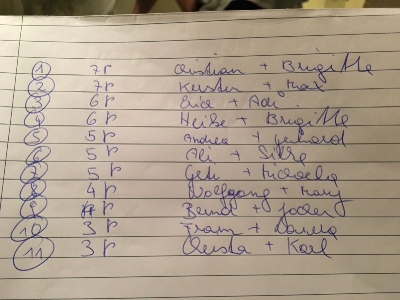 1 7P Christian + Brigitte
2 7P Kerstin + Max
3 6P Erica + Adi
4 6P Heike + Brigitte
5 5P Andrea + Gerhard
6 5P Ali + Silke
7 5P Gabi + Michaela
8 4P Wolfgang + Mary
9 P Bernd +
10 3P Franz +
11 3P Christa + Karl